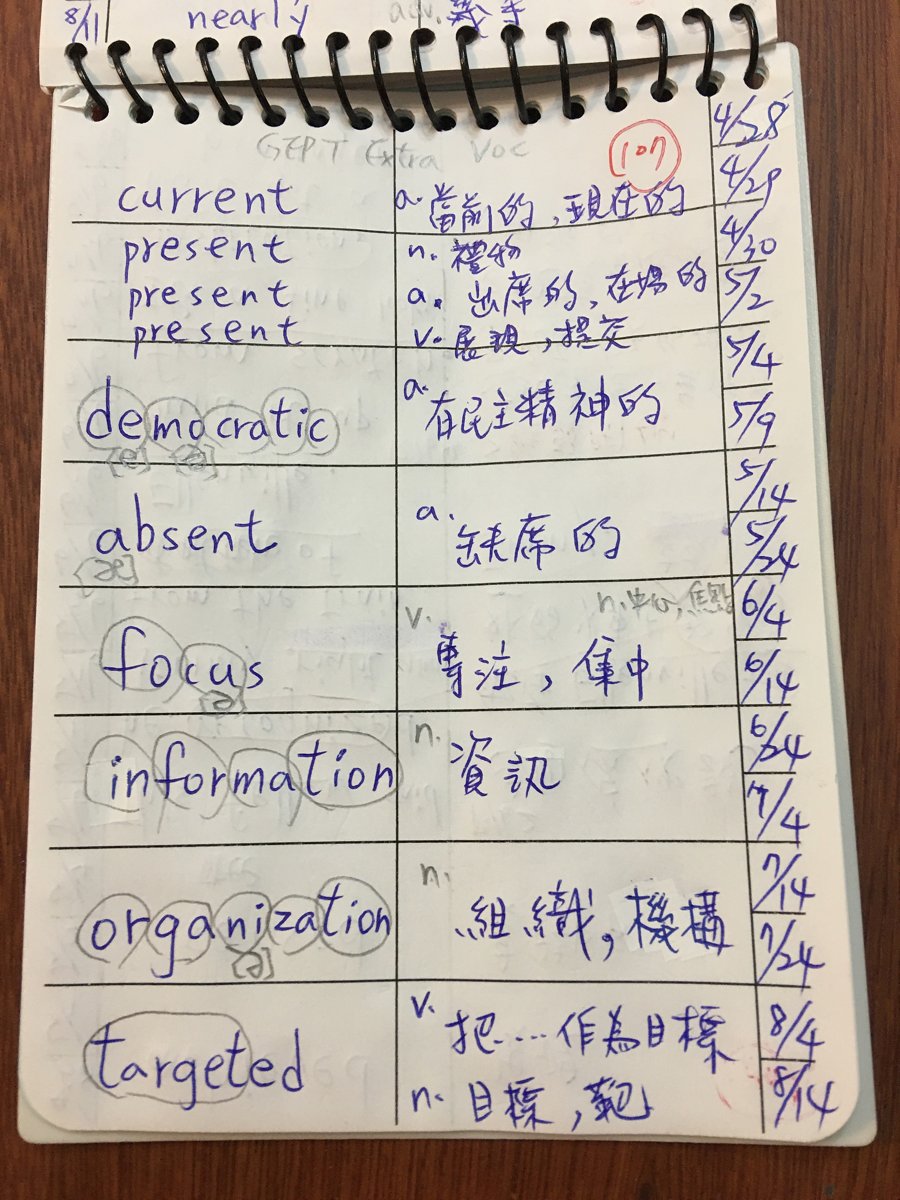 8/11 nearly adv. 幾乎
GEPT Extra Voc 107 4/28
current a. 當前的,現在的 4/29
present n. 禮物 4/30
present a. 出席的,在場的 5/2
present v. 展現,提交 5/4
democratic a. 有民主精神的 5/9
[e] [ə] 5/14
absent a. 缺席的 5/24
[æ] n. 中心,焦點 6/4
focus v. 專注,集中 6/14
[ə] 6/24
information n. 資訊 7/4
7/14
organization n. 組織,機構 7/24
[ə]
targeted v. 把....作為目標 8/4
n. 目標,靶 8/14